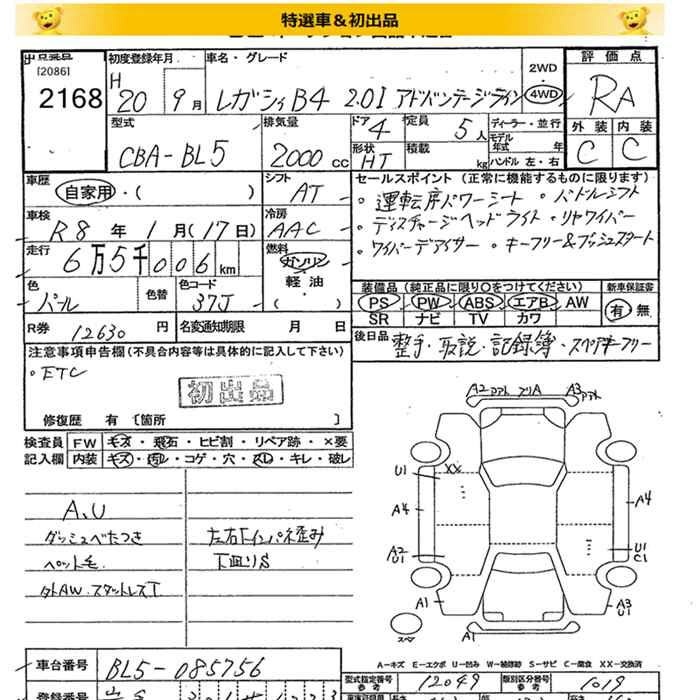 特選車&初出品
出品番号 初度登録年月 車名・グレード 2WD 評価点
[2086]
2168
H 20 9月 レガシィB4 2.0I アドバンテージライン 4WD RA
型式 排気量 ドア 定員 ディーラー・並行 外装 内装
CBA-BL5 2000cc 4 5人 モデル年式 年 C C
形状 積載 kg ハンドル 左・右
HT
車歴 シフト セールスポイント(正常に機能するものに限ります)
自家用・( ) AT ・運転席パワーシート ・パドルシフト
車検 冷房 ・ディスチャージヘッドライト ・リヤワイパー
R8年1月(17日) AAC ・ワイパーデアイサー ・キーフリー&プッシュスタート
走行 燃料
6万5千006km ガソリン
軽油
( )
色 色替 色コード 装備品(純正品に限り○をつけてください) 新車保証書
パール 37J PS PW ABS エアB AW 有 無
SR ナビ TV カワ
R券 12630円 名変通知期限 月 日 後日品 整手・取説・記録簿・スペアキーフリー
注意事項申告欄(不具合内容等は具体的に記入して下さい)
・ETC
初出品
修復歴 有 〔箇所 〕
検査員 FW キズ・飛石・ヒビ割・リペア跡・×要
記入欄 内装 キズ・汚レ・コゲ・穴・スレ・キレ・破レ
A、U
ダッシュべたつき 左右Fインパネ歪み
ペット毛 下廻りS
外AW.スタットレスT
A2 アアト フリA A3 アアト
U1 XX
A4 A4
A2 U1
U1 C1
A1 A3 U1
スペア A1
A-キズ E-エクボ U-凹み W-補修跡 S-サビ C-腐食 XX-交換済
車台番号 BL5-085756
型式指定番号 参考 12049 類別区分番号 参考 1019
登録番号